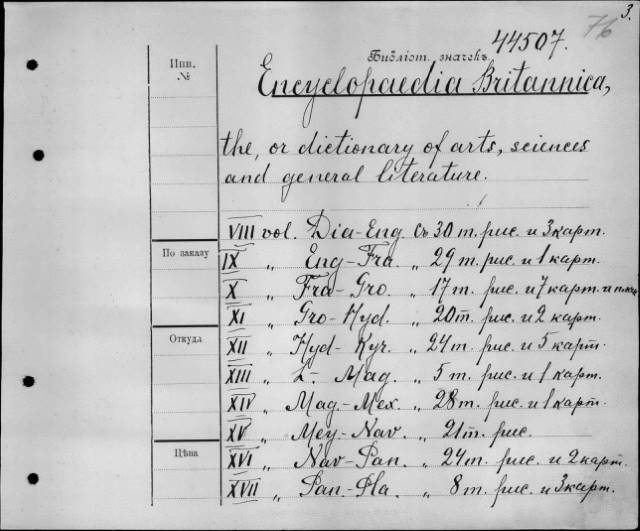 3.
76
44507.
Инв.
№
Библіот. значекъ
Encyclopaedia Britannica,
the, or dictionary of arts, sciences
and general literature.
VIII vol. Dia-Eng. Съ 30 т. рис. и 3 карт.
По заказу
IX „ Eng-Fra. „ 29 т. рис. и 1 карт.
X „ Fra-Gro. „ 17 т. рис. и 7 карт. и
XI „ Gro-Hyd. „ 20 т. рис. и 2 карт.
Откуда
XII „ Hyd-Kyr. „ 24 т. рис. и 5 карт.
XIII „ L- Mag. „ 5 т. рис. и 1 карт.
XIV „ Mag-Mex. „ 28 т. рис. и 1 карт.
XV „ Mey-Nav „ 21 т. рис.
Цѣна
XVI „ Nav-Pan. „ 24 т. рис. и 2 карт.
XVII „ Pan-Pla. „ 8 т. рис. и 3 карт.